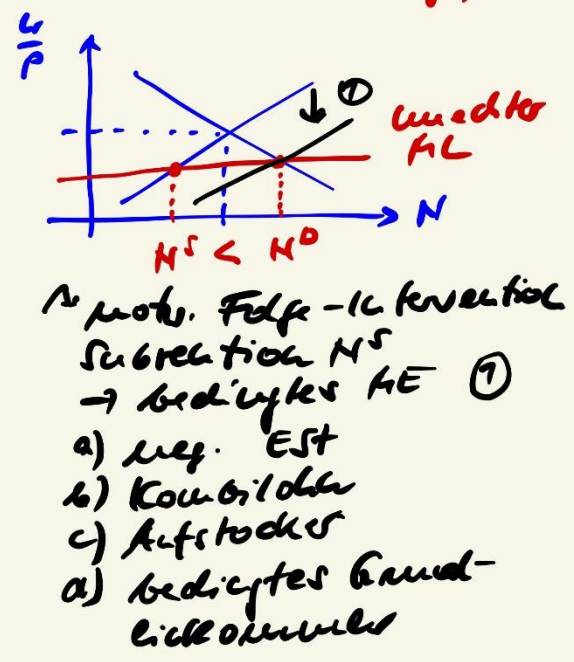 w/p
①
unechter
ML
N
N^S < N^D
→ notw. Folge-Intervention
Subvention N^S
→ bedingtes ME ①
a) neg. ESt
b) Kombilohn
c) Aufstocker
d) bedingtes Grund-
einkommen